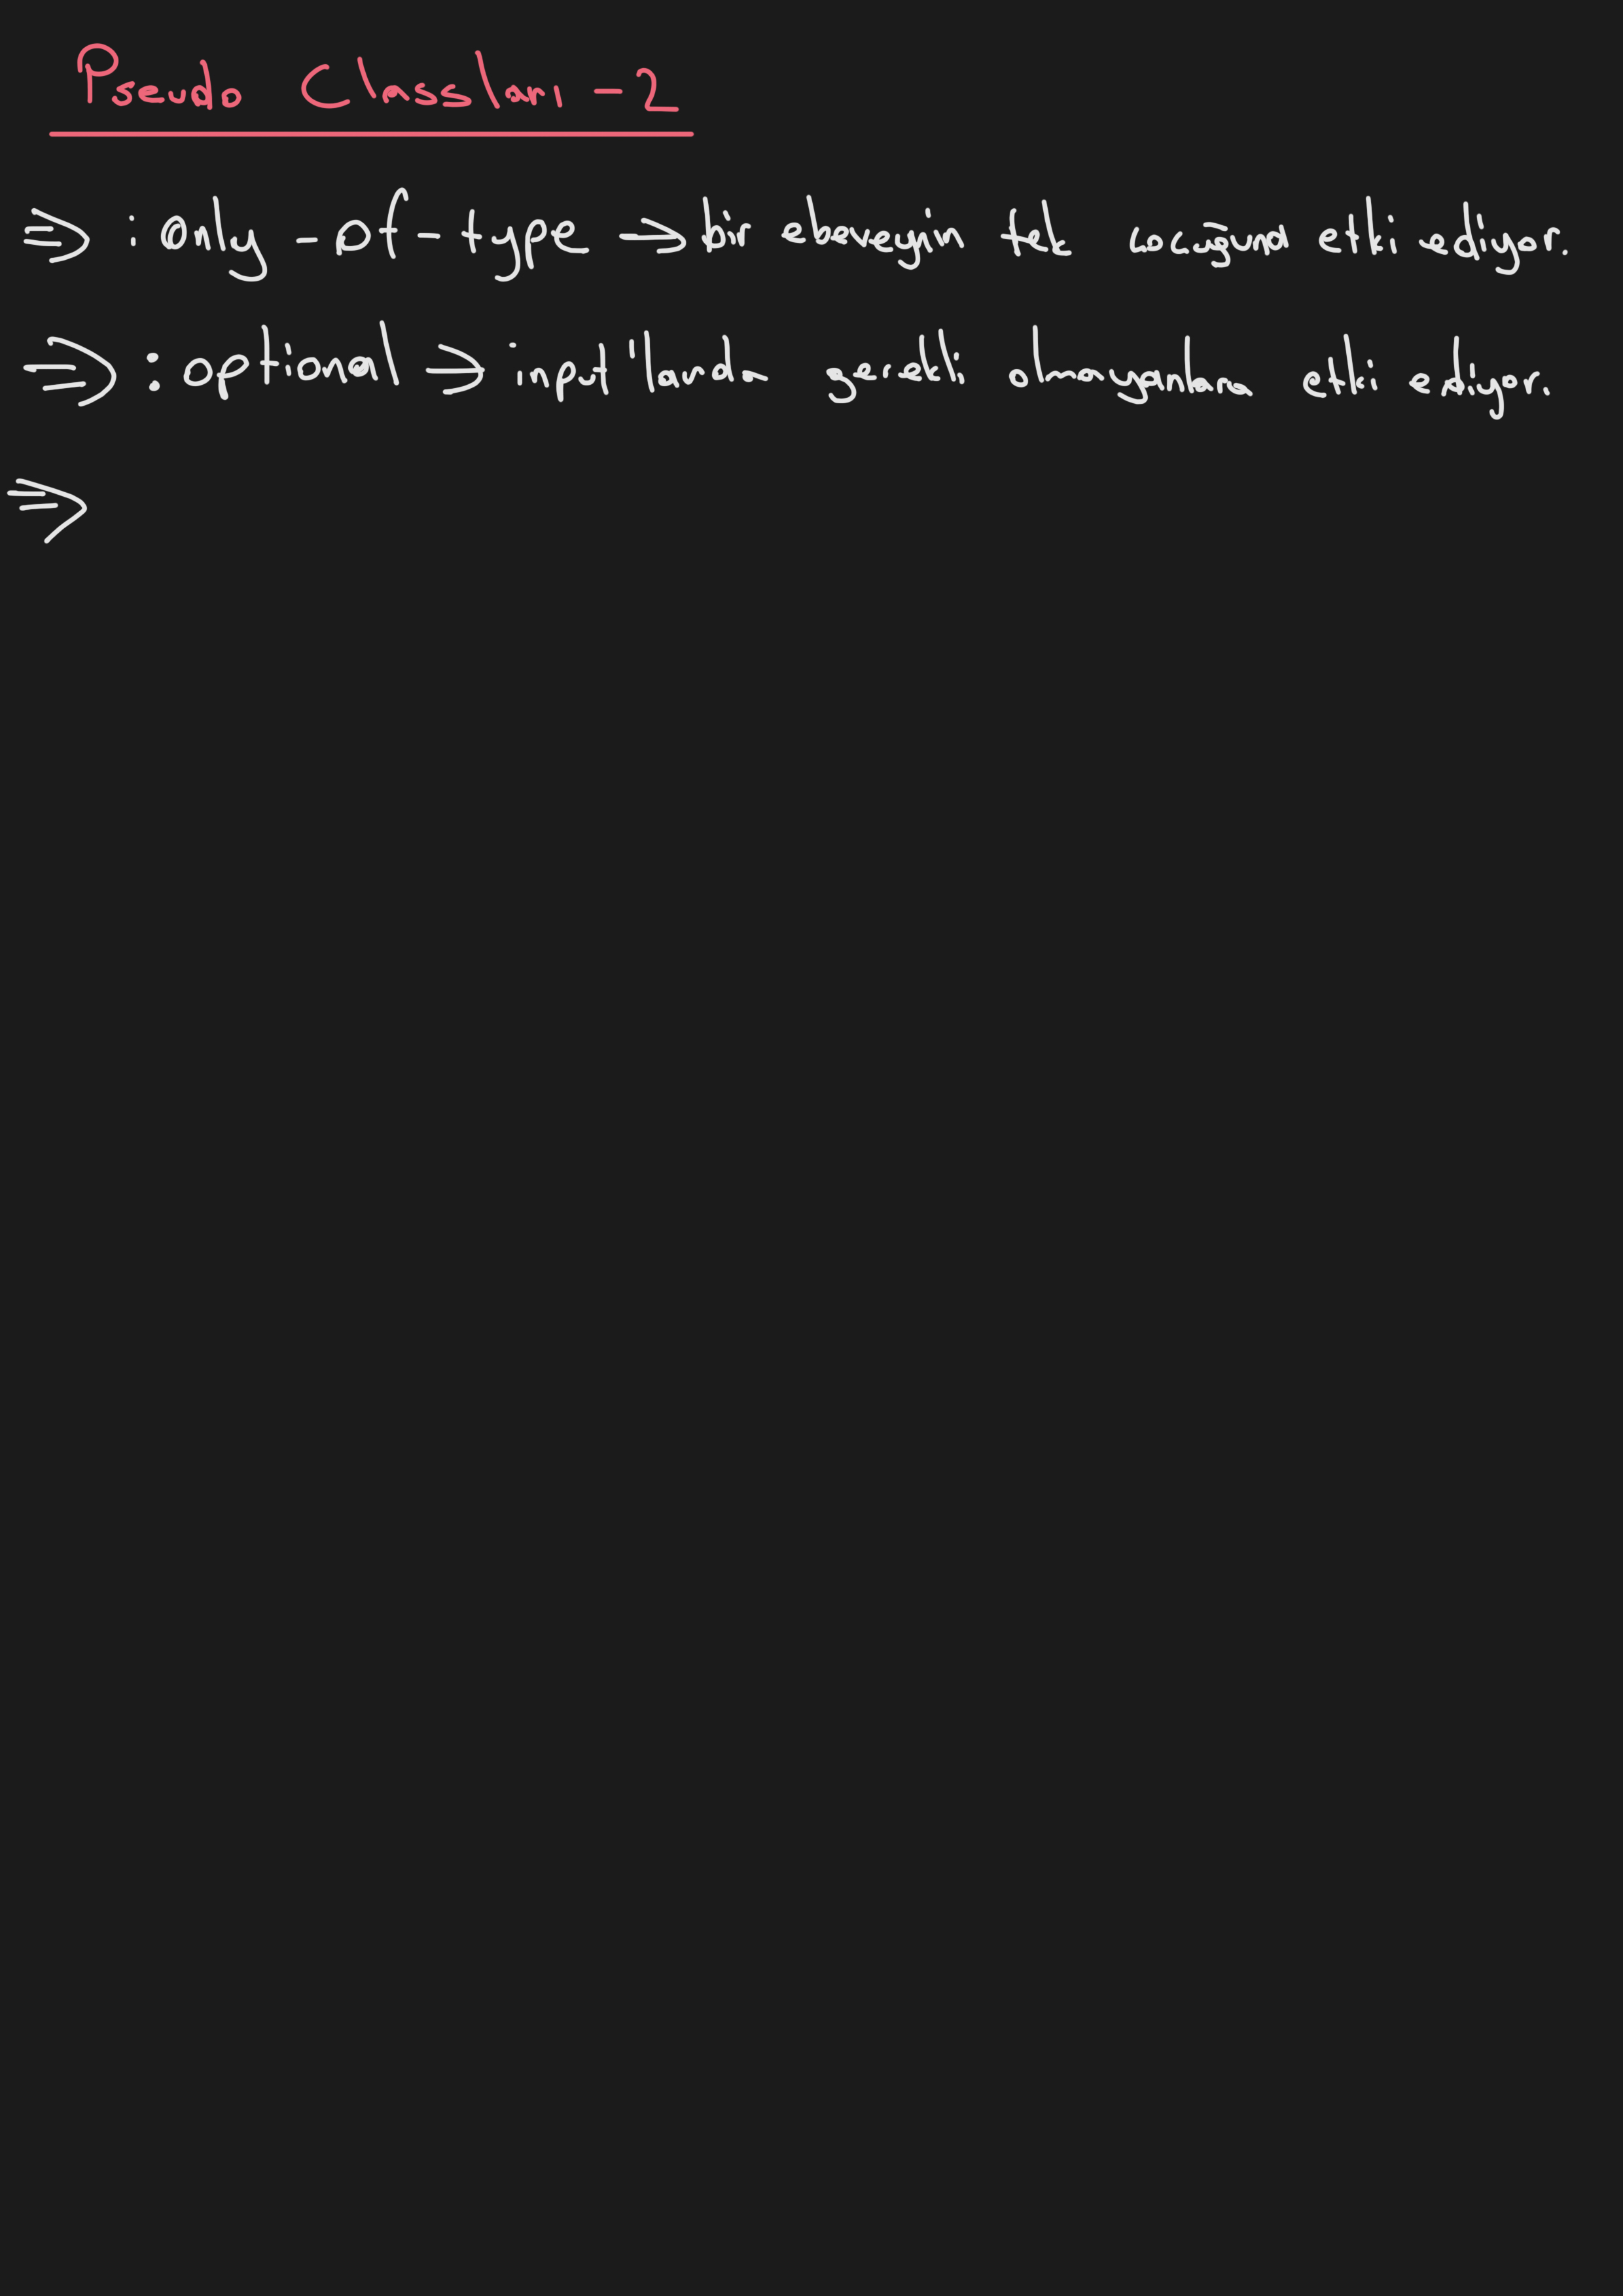 Pseudo Classları -2
⇒ :only-of-type ⇒ bir ebeveynin tek çocuğuna etki ediyor.
⇒ :optional ⇒ input'lardan gerekli olmayanlara etki ediyor.
⇒